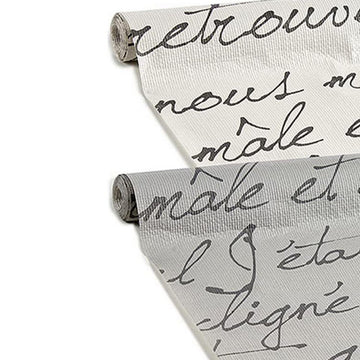 retrouv
nous m
mâle e
mâle et
il J'éta
ligné